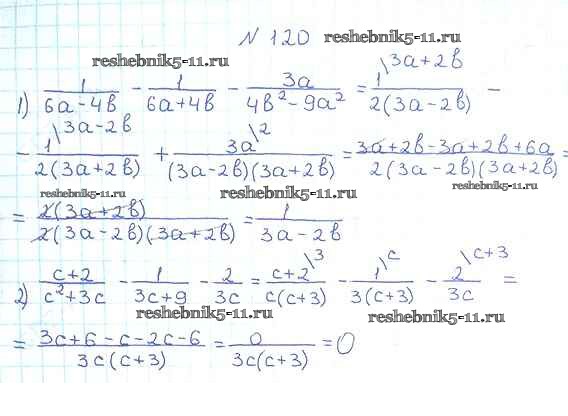 N 120 reshebnik5-11.ru
reshebnik5-11.ru
1) 1/(6a-4b) - 1/(6a+4b) - 3a/(4b²-9a²) = 1\3a+2b/(2(3a-2b)) -
- 1\3a-2b/(2(3a+2b)) + 3a\2/((3a-2b)(3a+2b)) = (3a+2b-3a+2b+6a)/(2(3a-2b)(3a+2b)) =
reshebnik5-11.ru reshebnik5-11.ru reshebnik5-11.ru
= 2(3a+2b)/(2(3a-2b)(3a+2b)) = 1/(3a-2b)
2) (c+2)/(c²+3c) - 1/(3c+9) - 2/(3c) = c+2\3/(c(c+3)) - 1\c/(3(c+3)) - 2\c+3/(3c) =
reshebnik5-11.ru reshebnik5-11.ru
= (3c+6-c-2c-6)/(3c(c+3)) = 0/(3c(c+3)) = 0